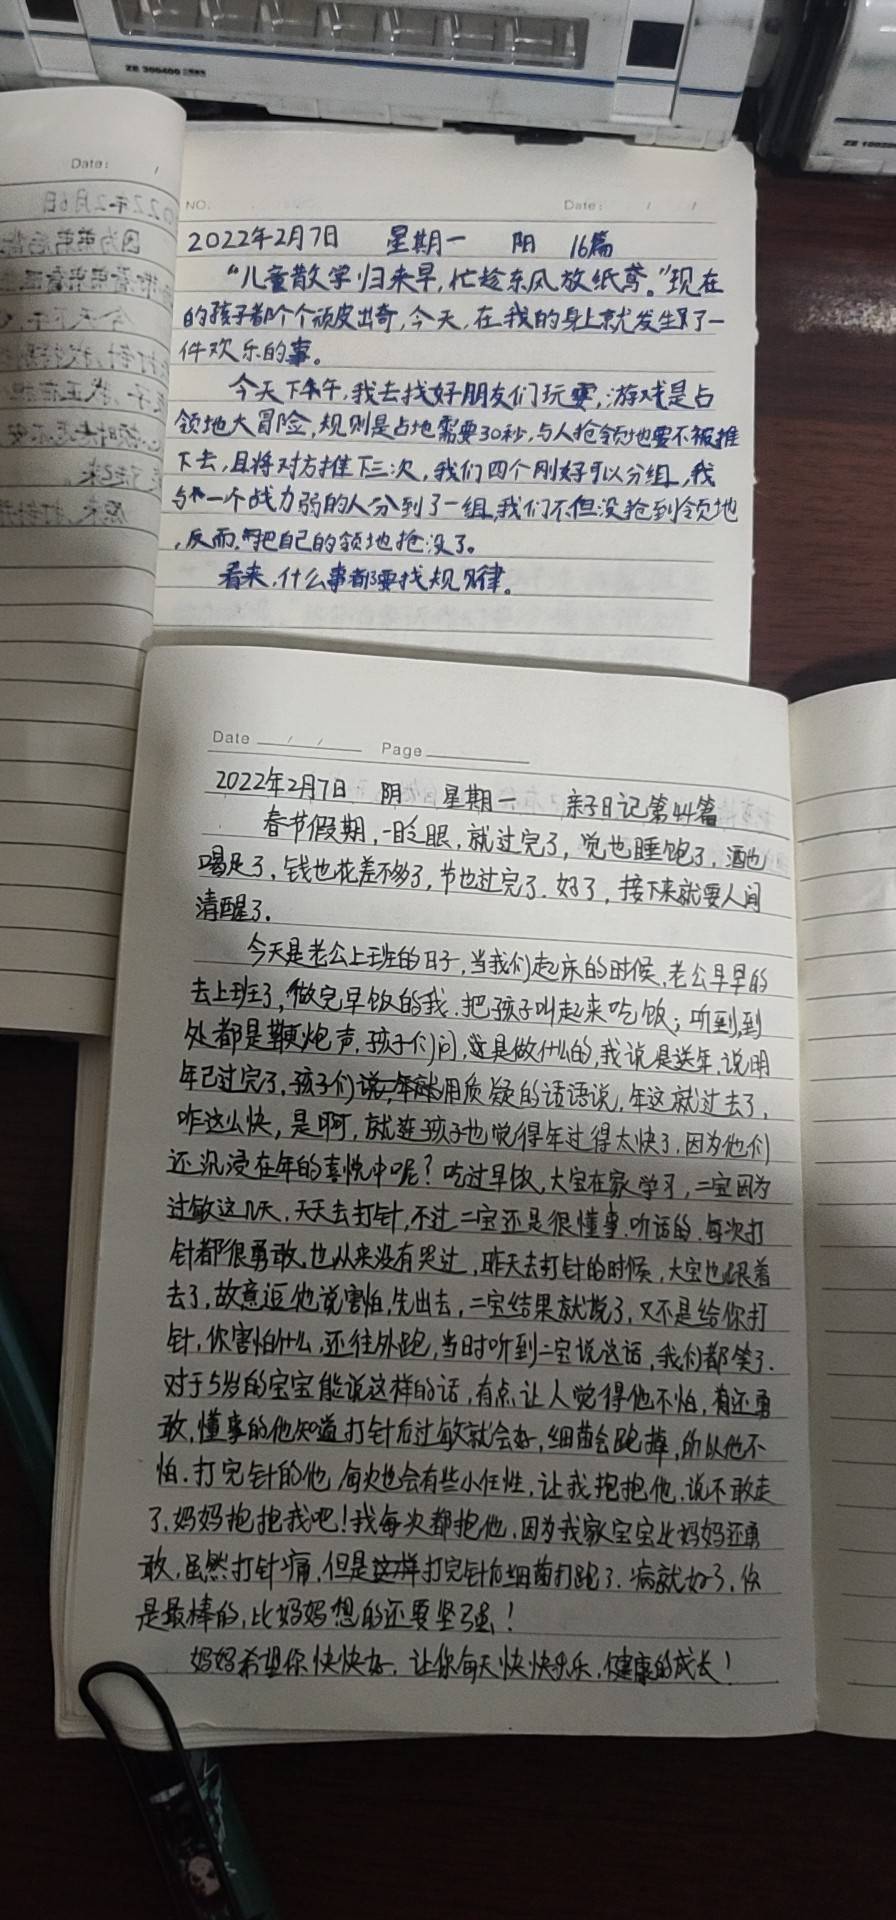 ZE 300400
ZE 100200
Date: /
NO.
Date: / /
2022年2月7日 星期一 阴 16篇
“儿童散学归来早,忙趁东风放纸鸢。”现在
的孩子都个个顽皮出奇,今天,在我的身上就发生了一
件欢乐的事。
今天下午,我去找好朋友们玩耍,游戏是占
领地大冒险,规则是占地需要30秒,与人抢领地要不被推
下去,且将对方推下三次,我们四个刚好可以分组,我
与一个战力弱的人分到了一组,我们不但没抢到领地
,反而,把自己的领地抢没了。
看来,什么事都要找规律。
Date / / Page
2022年2月7日 阴 星期一 亲子日记第44篇
春节假期,一眨眼,就过完了,觉也睡饱了,酒也
喝足了,钱也花差不多了,节也过完了.好了,接下来就要人间
清醒了.
今天是老公上班的日子,当我们起床的时候,老公早早的
去上班了,做完早饭的我.把孩子叫起来吃饭;听到,到
处都是鞭炮声,孩子们问,这是做什么的,我说是送年,说明
年已过完了,孩子们用质疑的话语说,年这就过去了,
咋这么快,是啊,就连孩子也觉得年过得太快了,因为他们
还沉浸在年的喜悦中呢?吃过早饭,大宝在家学习,二宝因为
过敏这几天,天天去打针,不过二宝还是很懂事.听话的.每次打
针都很勇敢,也从来没有哭过,昨天去打针的时候,大宝也跟着
去了,故意逗他说害怕,先出去,二宝结果就说了,又不是给你打
针,你害怕什么,还往外跑,当时听到二宝说这话,我们都笑了.
对于5岁的宝宝能说这样的话,有点让人觉得他不怕,有还勇
敢,懂事的他知道打针后过敏就会好,细菌会跑掉,所以他不
怕.打完针的他,每次也会有些小任性,让我抱抱他,说不敢走
了,妈妈抱抱我吧!我每次都抱他,因为我家宝宝比妈妈还勇
敢,虽然打针痛,但是打完针后细菌打跑了.病就好了,你
是最棒的,比妈妈想的还要坚强!
妈妈希望你快快好,让你每天快快乐乐,健康的成长!